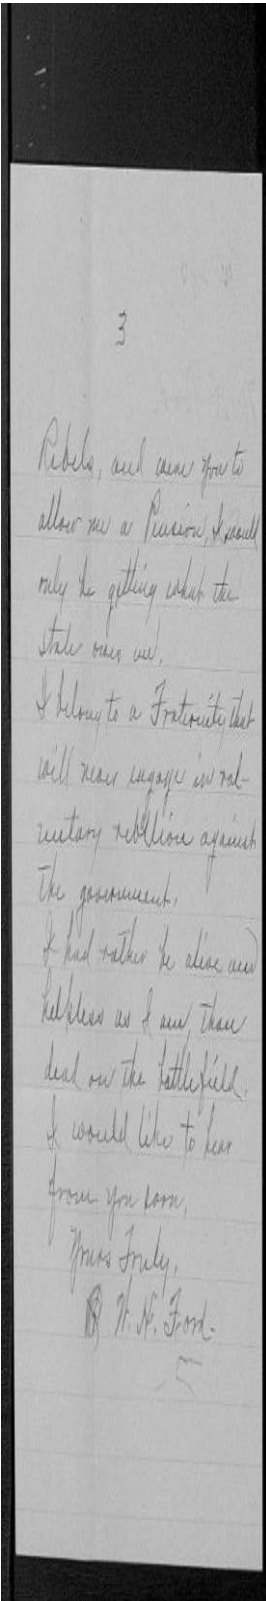 3
Rebels, and were you to
allow me a Pension, I would
only be getting what the
state owes me.
I belong to a Fraternity that
will never engage in vol-
untary rebellion against
the government.
I had rather be alive and
helpless as I am, than
dead on the battlefield.
I would like to hear
from you soon,
Yours Truly,
W. N. Ford.
5